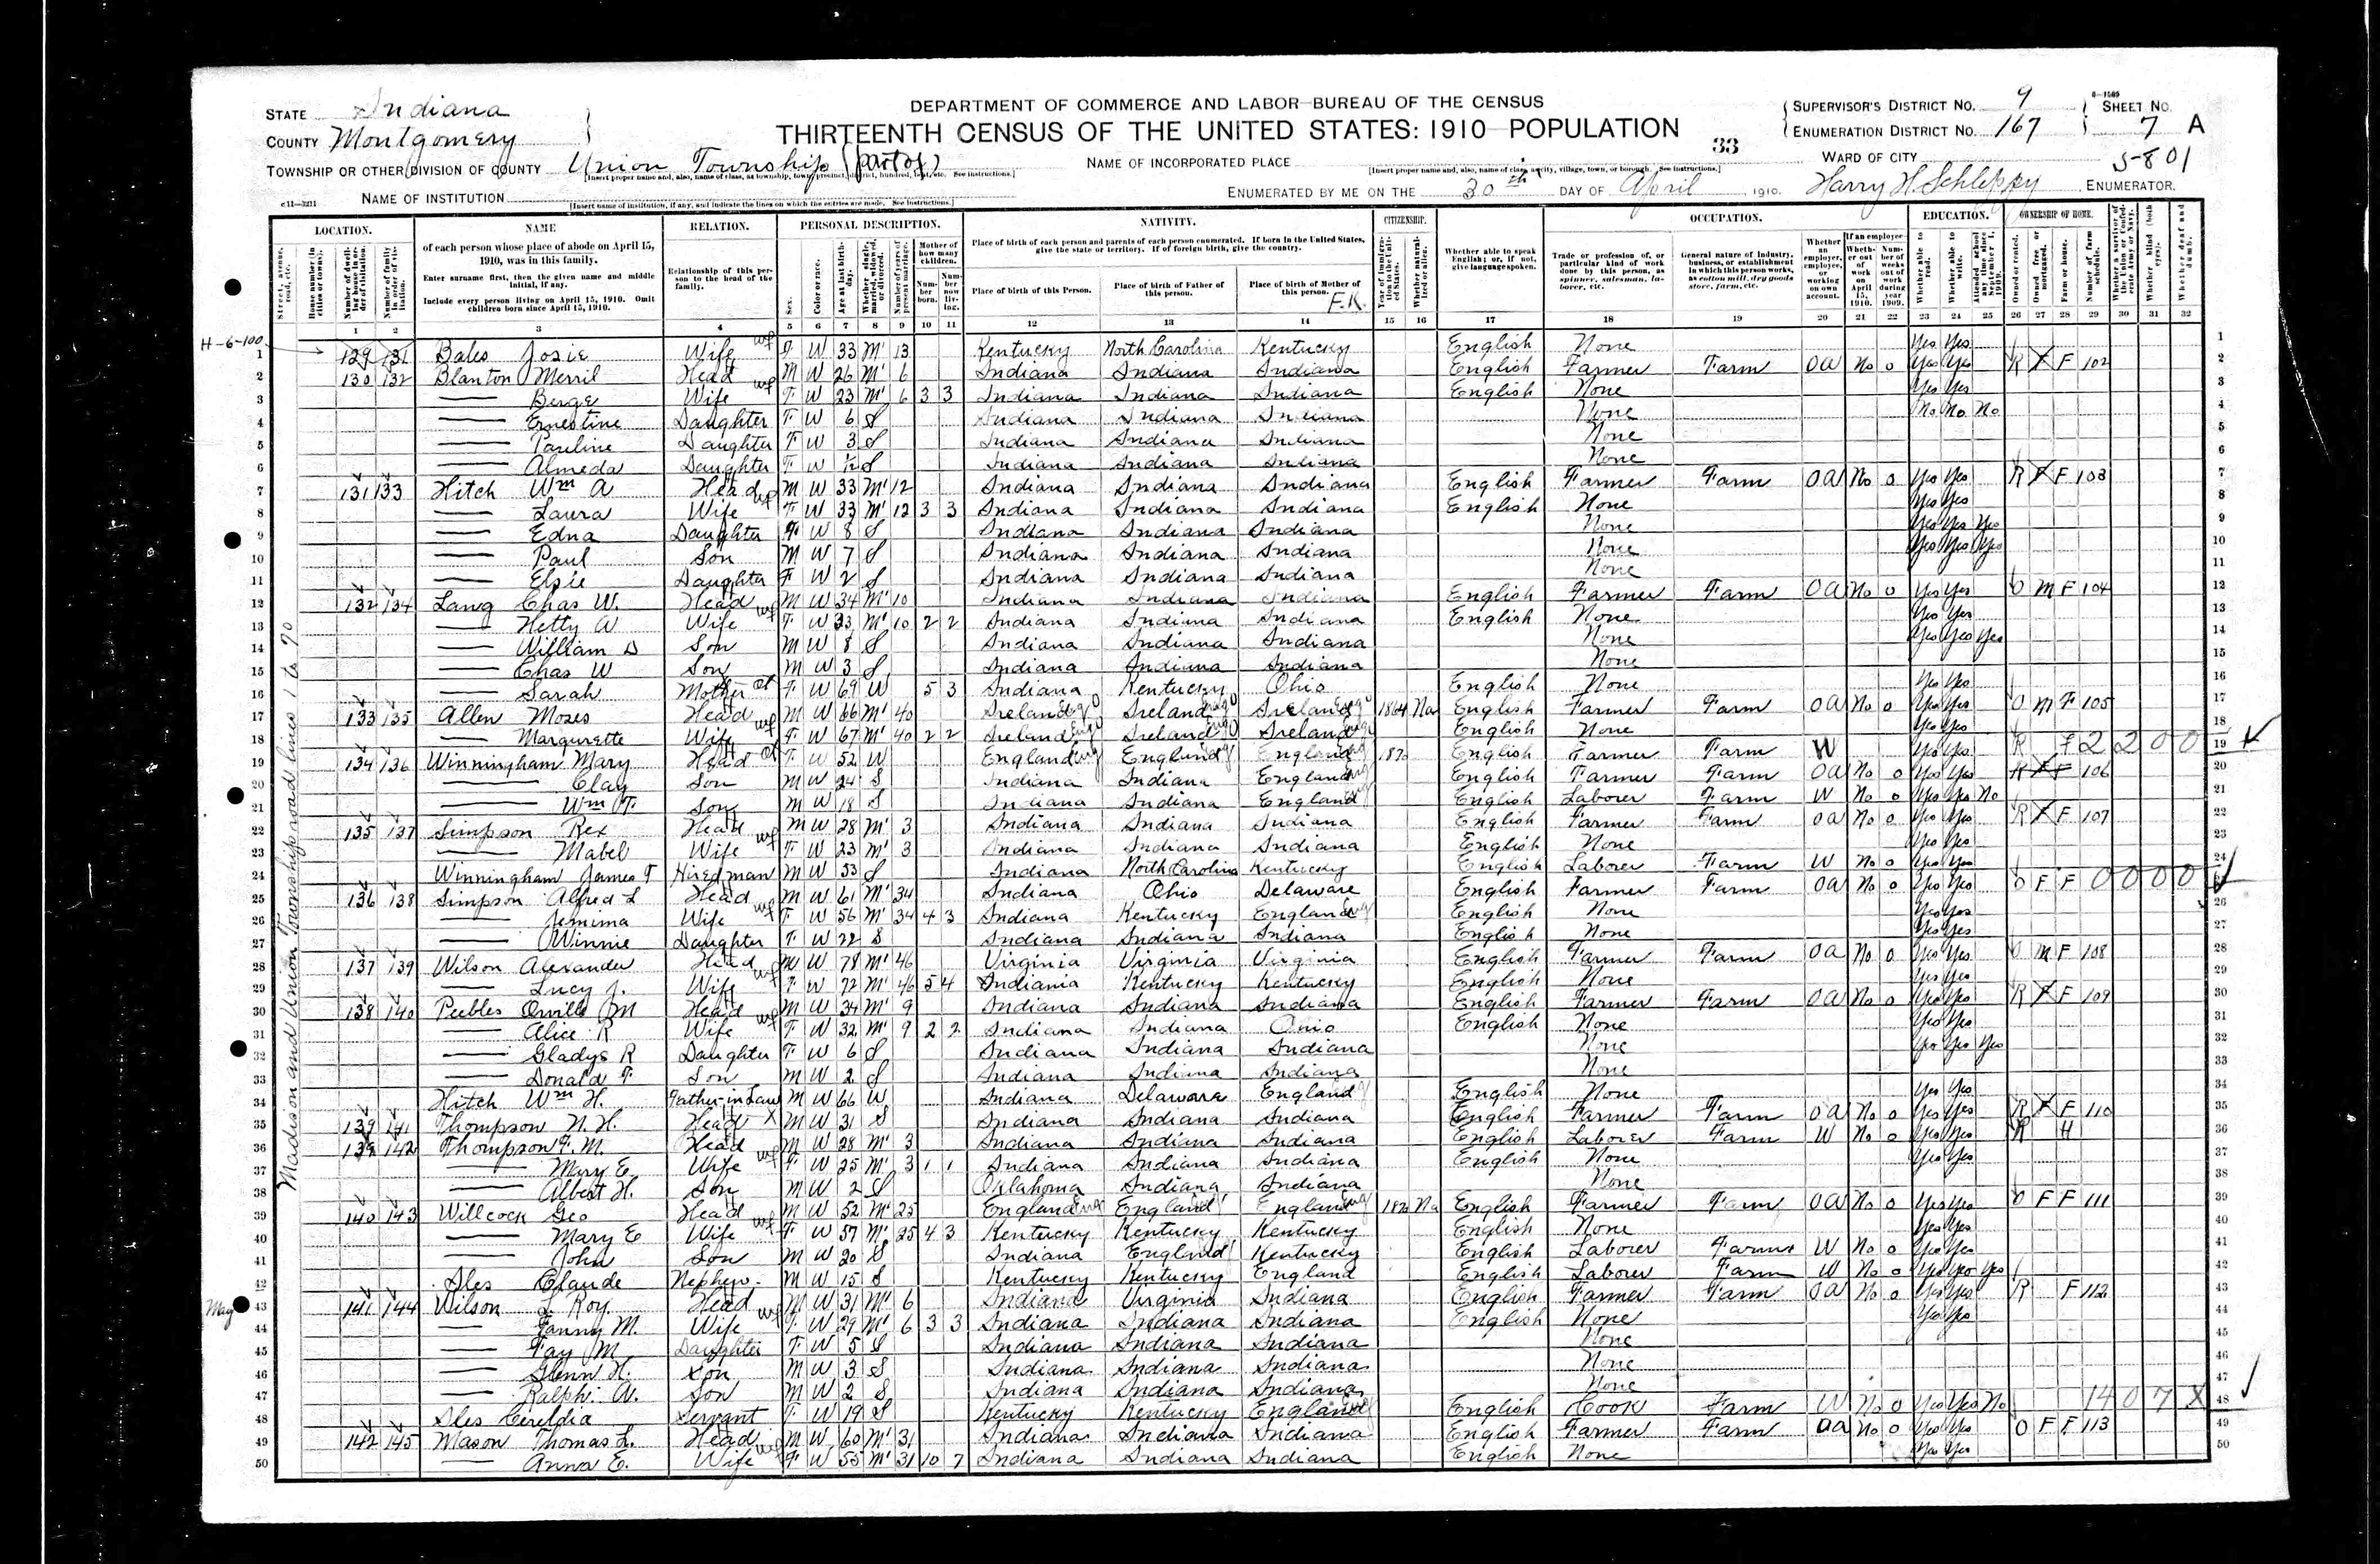 DEPARTMENT OF COMMERCE AND LABOR—BUREAU OF THE CENSUS
THIRTEENTH CENSUS OF THE UNITED STATES: 1910—POPULATION
33
STATE Indiana
COUNTY Montgomery
TOWNSHIP OR OTHER DIVISION OF COUNTY Union Township (part of)
NAME OF INSTITUTION
NAME OF INCORPORATED PLACE
ENUMERATED BY ME ON THE 30th DAY OF April, 1910.
SUPERVISOR'S DISTRICT NO. 9
ENUMERATION DISTRICT NO. 167
SHEET NO. 7 A
WARD OF CITY
5801
Harry H Schleppy ENUMERATOR.
LOCATION. NAME RELATION. PERSONAL DESCRIPTION. NATIVITY. CITIZENSHIP. OCCUPATION. EDUCATION. OWNERSHIP OF HOME.
of each person whose place of abode on April 15, 1910, was in this family.
Enter surname first, then the given name and middle initial, if any.
Include every person living on April 15, 1910. Omit children born since April 15, 1910.
Relationship of this person to the head of the family.
Place of birth of each person and parents of each person enumerated. If born in the United States, give the state or territory. If of foreign birth, give the country.
Place of birth of this Person. Place of birth of Father of this person. Place of birth of Mother of this person.
F.K.
Whether able to speak English; or, if not, give language spoken.
Madison and Union Township road lines 1 to 90
H-6-100
1 129 131 Bales Josie Wife F W 33 M1 13 Kentucky North Carolina Kentucky English None Yes Yes
2 130 132 Blanton Merril Head M W 26 M1 6 Indiana Indiana Indiana English Farmer Farm OA No 0 Yes Yes R F 102
3 —— Wife F W 23 M1 6 3 3 Indiana Indiana Indiana English None Yes Yes
4 —— Ernestine Daughter F W 6 S Indiana Indiana Indiana None No No No
5 —— Pauline Daughter F W 3 S Indiana Indiana Indiana None
6 —— Almeda Daughter F W S Indiana Indiana Indiana None
7 131 133 Hitch Wm A Head M W 33 M1 12 Indiana Indiana Indiana English Farmer Farm OA No 0 Yes Yes R F 103
8 —— Laura Wife F W 33 M1 12 3 3 Indiana Indiana Indiana English None Yes Yes
9 —— Edna Daughter F W 8 S Indiana Indiana Indiana None Yes Yes Yes
10 —— Paul Son M W 7 S Indiana Indiana Indiana None Yes Yes Yes
11 —— Elsie Daughter F W 2 S Indiana Indiana Indiana None
12 132 134 Lang Chas W. Head M W 34 M1 10 Indiana Indiana Indiana English Farmer Farm OA No 0 Yes Yes O M F 104
13 —— Hetty W Wife F W 33 M1 10 2 2 Indiana Indiana Indiana English None Yes Yes
14 —— William D Son M W 8 S Indiana Indiana Indiana None Yes Yes Yes
15 —— Chas W Son M W 3 S Indiana Indiana Indiana None
16 —— Sarah Mother F W 69 W 5 3 Indiana Kentucky Ohio English None Yes Yes
17 133 135 Allen Moses Head M W 66 M1 40 Ireland Ireland Ireland 1864 Na English Farmer Farm OA No 0 Yes Yes O M F 105
18 —— Margurette Wife F W 67 M1 40 2 2 Ireland Ireland Ireland English None Yes Yes
19 134 136 Winningham Mary Head F W 52 W England England England English Farmer Farm W Yes Yes R F 2 2 0 0
20 —— Clay Son M W 24 S Indiana Indiana England English Farmer Farm OA No 0 Yes Yes R F 106
21 —— Wm T. Son M W 18 S Indiana Indiana England English Laborer Farm W No 0 Yes Yes No
22 135 137 Simpson Rex Head M W 28 M1 3 Indiana Indiana Indiana English Farmer Farm OA No 0 Yes Yes R F 107
23 —— Mabel Wife F W 23 M1 3 Indiana Indiana Indiana English None Yes Yes
24 Winningham James T Hired man M W 53 S Indiana North Carolina Kentucky English Laborer Farm W No 0 Yes Yes
25 136 138 Simpson Alfred L Head M W 61 M1 34 Indiana Ohio Delaware English Farmer Farm OA No 0 Yes Yes O F F 0 0 0 0
26 —— Jemima Wife F W 56 M1 34 4 3 Indiana Kentucky England English None Yes Yes
27 —— Winnie Daughter F W 22 S Indiana Indiana Indiana English None Yes Yes
28 137 139 Wilson Alexander Head M W 78 M1 46 Virginia Virginia Virginia English Farmer Farm OA No 0 Yes Yes O M F 108
29 —— Lucy J. Wife F W 72 M1 46 5 4 Indiana Kentucky Kentucky English None Yes Yes
30 138 140 Peebles Orville M Head M W 34 M1 9 Indiana Indiana Indiana English Farmer Farm OA No 0 Yes Yes R F 109
31 —— Alice R Wife F W 32 M1 9 2 2 Indiana Indiana Ohio English None Yes Yes
32 —— Gladys R Daughter F W 6 S Indiana Indiana Indiana None Yes Yes Yes
33 —— Donald F. Son M W 2 S Indiana Indiana Indiana None
34 Hitch Wm H. Father-in-Law M W 66 W Indiana Delaware England English None Yes Yes
35 139 141 Thompson N. H. Head M W 31 S Indiana Indiana Indiana English Farmer Farm OA No 0 Yes Yes R F 110
36 139 142 Thompson F. M. Head M W 28 M1 3 Indiana Indiana Indiana English Laborer Farm W No 0 Yes Yes R H
37 —— Mary E. Wife F W 25 M1 3 1 1 Indiana Indiana Indiana English None Yes Yes
38 —— Albert H. Son M W 2 S Oklahoma Indiana Indiana None
39 140 143 Willcock Geo Head M W 52 M1 25 England England England Na English Farmer Farm OA No 0 Yes Yes O F F 111
40 —— Mary E Wife F W 57 M1 25 4 3 Kentucky Kentucky Kentucky English None Yes Yes
41 —— John Son M W 20 S Indiana England Kentucky English Laborer Farm W No 0 Yes Yes
42 Iles Claude Nephew M W 15 S Kentucky Kentucky England English Laborer Farm W No 0 Yes Yes Yes
May 43 141 144 Wilson L Roy Head M W 31 M1 6 Indiana Virginia Indiana English Farmer Farm OA No 0 Yes Yes R F 112
44 —— Fanny M. Wife F W 29 M1 6 3 3 Indiana Indiana Indiana English None Yes Yes
45 —— Fay M Daughter F W 5 S Indiana Indiana Indiana None
46 —— Glenn H. Son M W 3 S Indiana Indiana Indiana None
47 —— Ralph A. Son M W 2 S Indiana Indiana Indiana None
48 Iles Servant F W 19 S Kentucky Kentucky England English Cook Farm W No 0 Yes Yes No 1 4 0 7 X
49 142 145 Mason Thomas L. Head M W 60 M1 31 Indiana Indiana Indiana English Farmer Farm OA No 0 Yes Yes O F F 113
50 —— Anna E. Wife F W 55 M1 31 10 7 Indiana Indiana Indiana English None Yes Yes